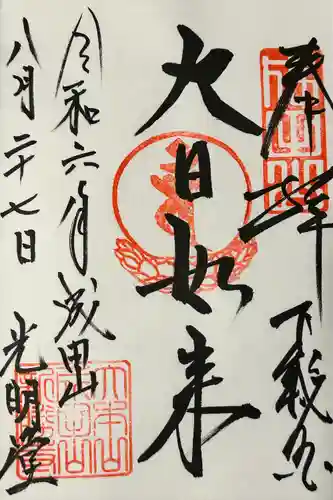 奉拝
下総國
大日如来
令和六年成田山
八月二十七日
光明堂